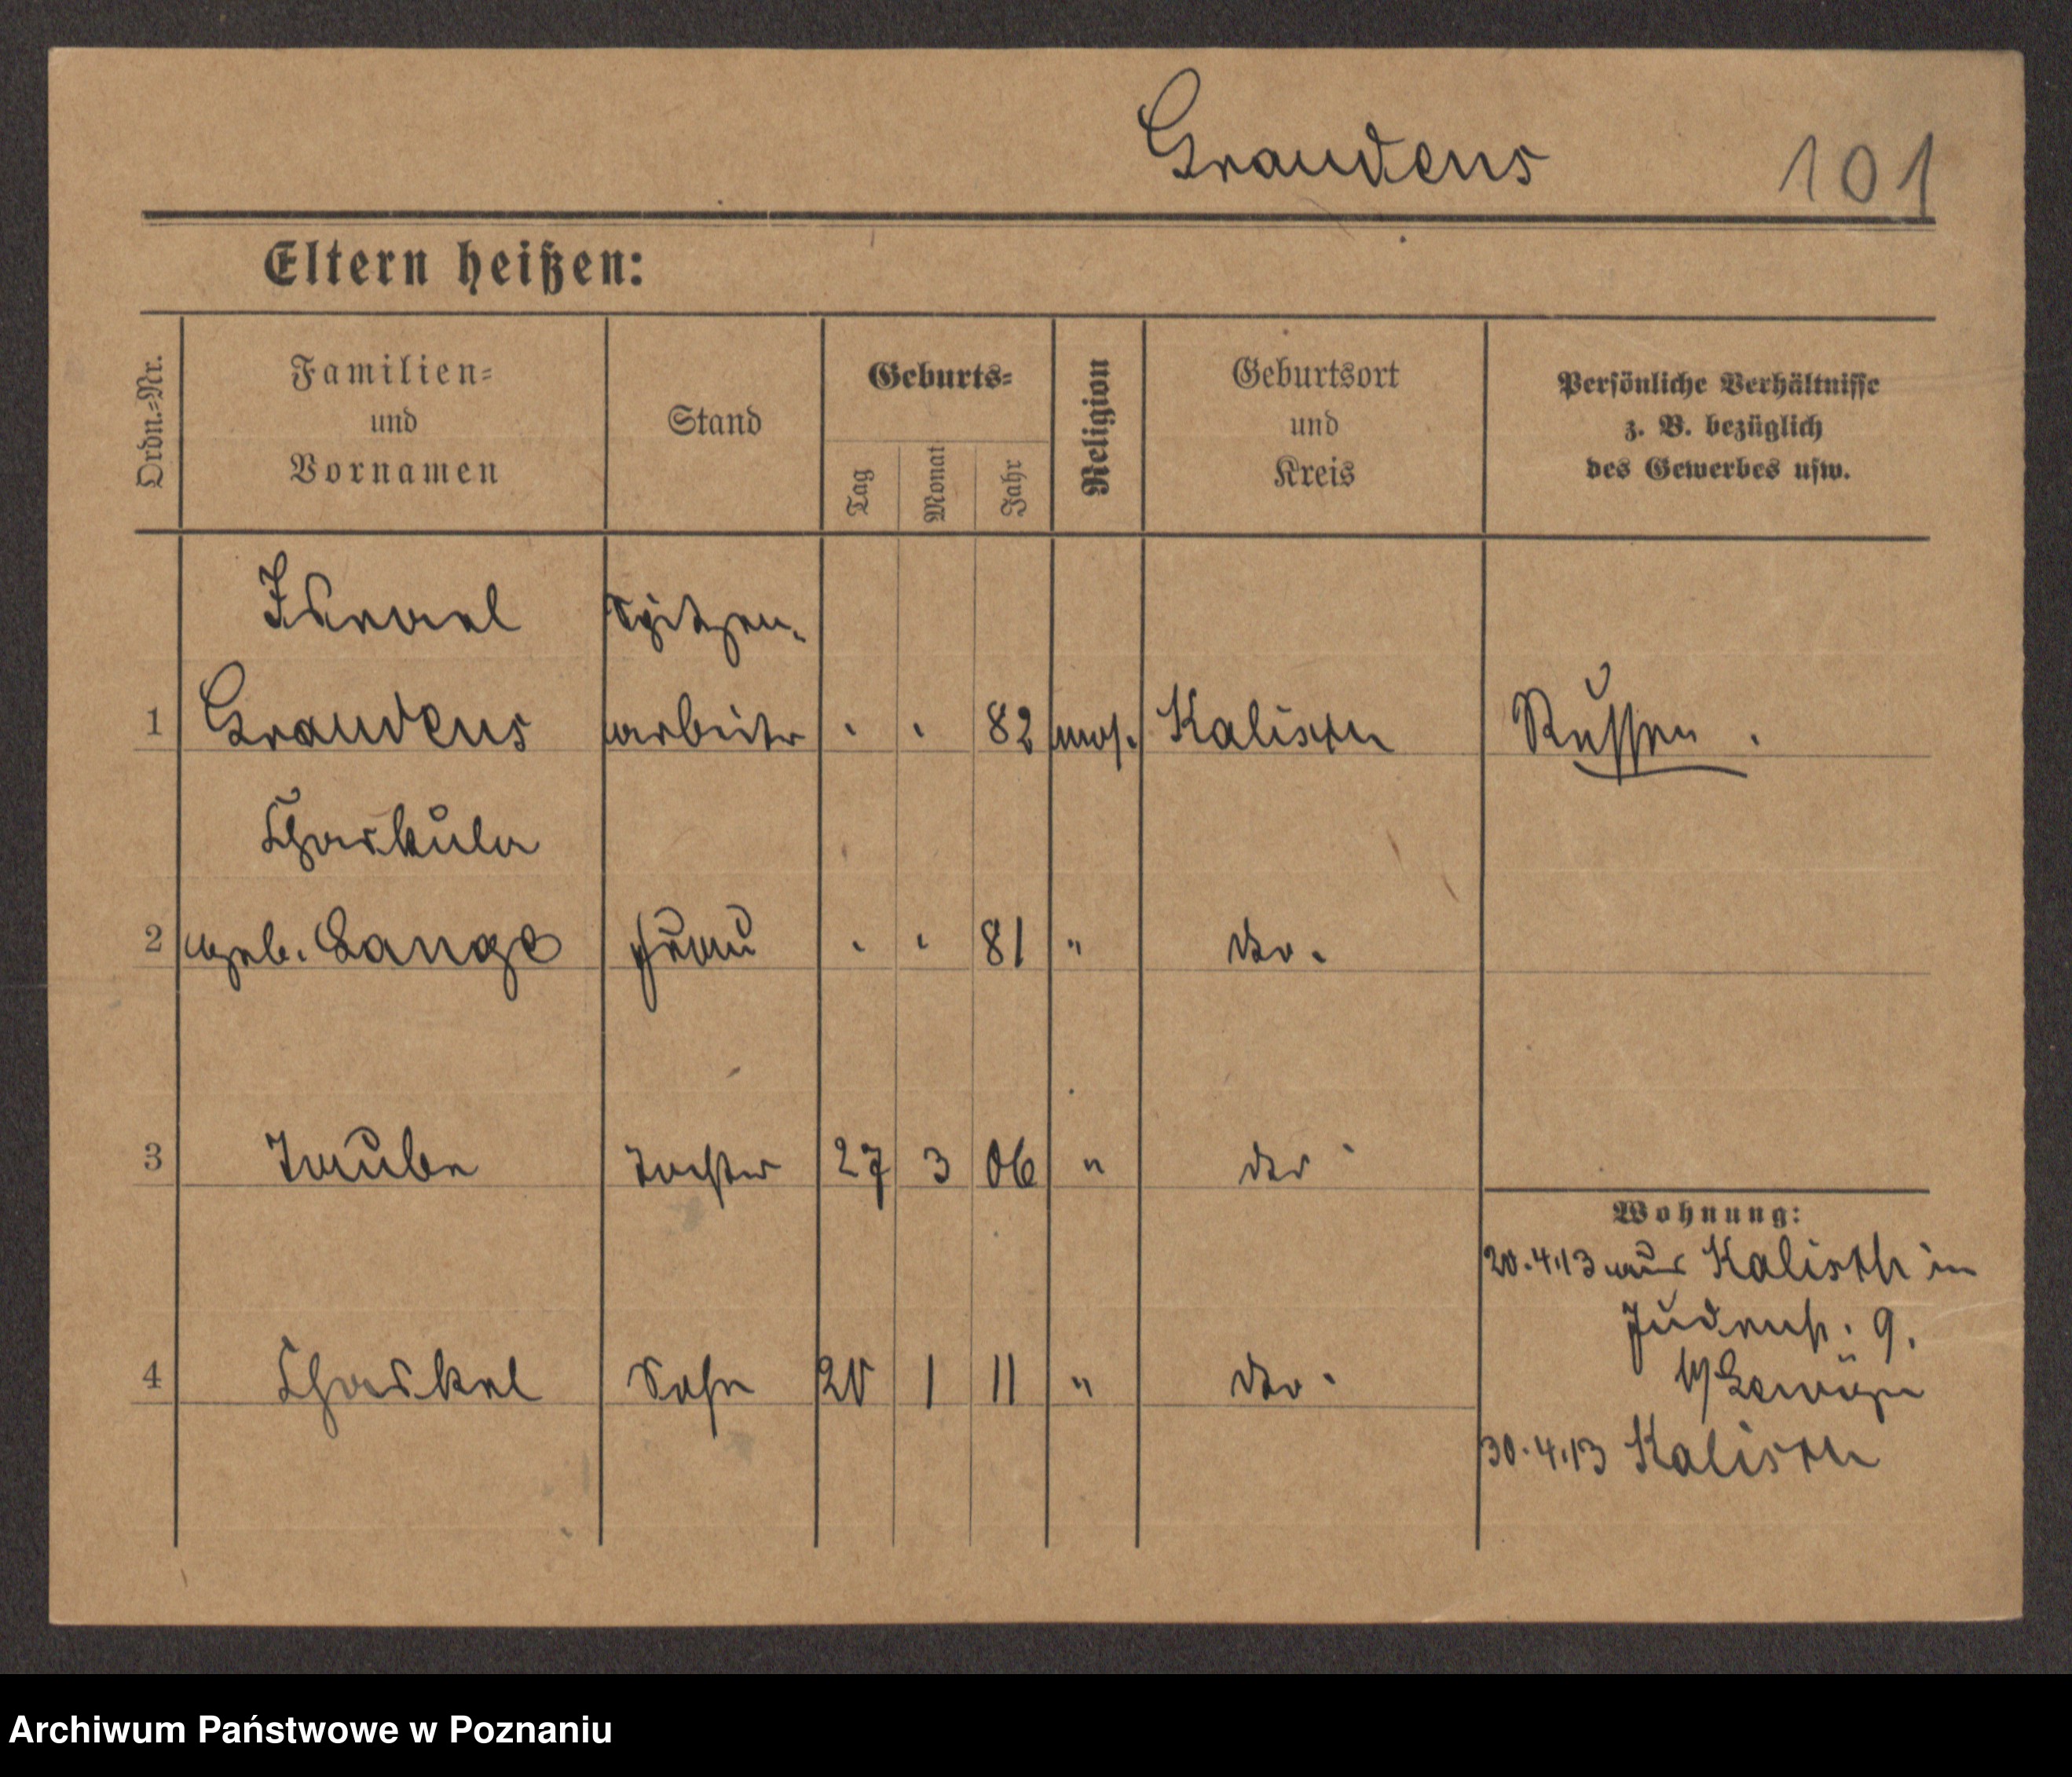 Graudens 101
Eltern heißen:
Ordn.-Nr.
Familien-
und
Vornamen
Stand
Geburts-
Tag
Monat
Jahr
Religion
Geburtsort
und
Kreis
Persönliche Verhältnisse
z. B. bezüglich
des Gewerbes usw.
Israel Spitzen-
1 Graudens arbeiter . . 82 mos. Kalisch Russen.
Chaskula
2 geb. Lange Frau . . 81 " do.
3 Taube Tochter 27 3 06 " do
4 Chaskel Sohn 20 1 11 " do.
Wohnung:
20.4.13 aus Kalisch in
Judenstr. 9.
b/
30.4.13 Kalisch
Archiwum Państwowe w Poznaniu